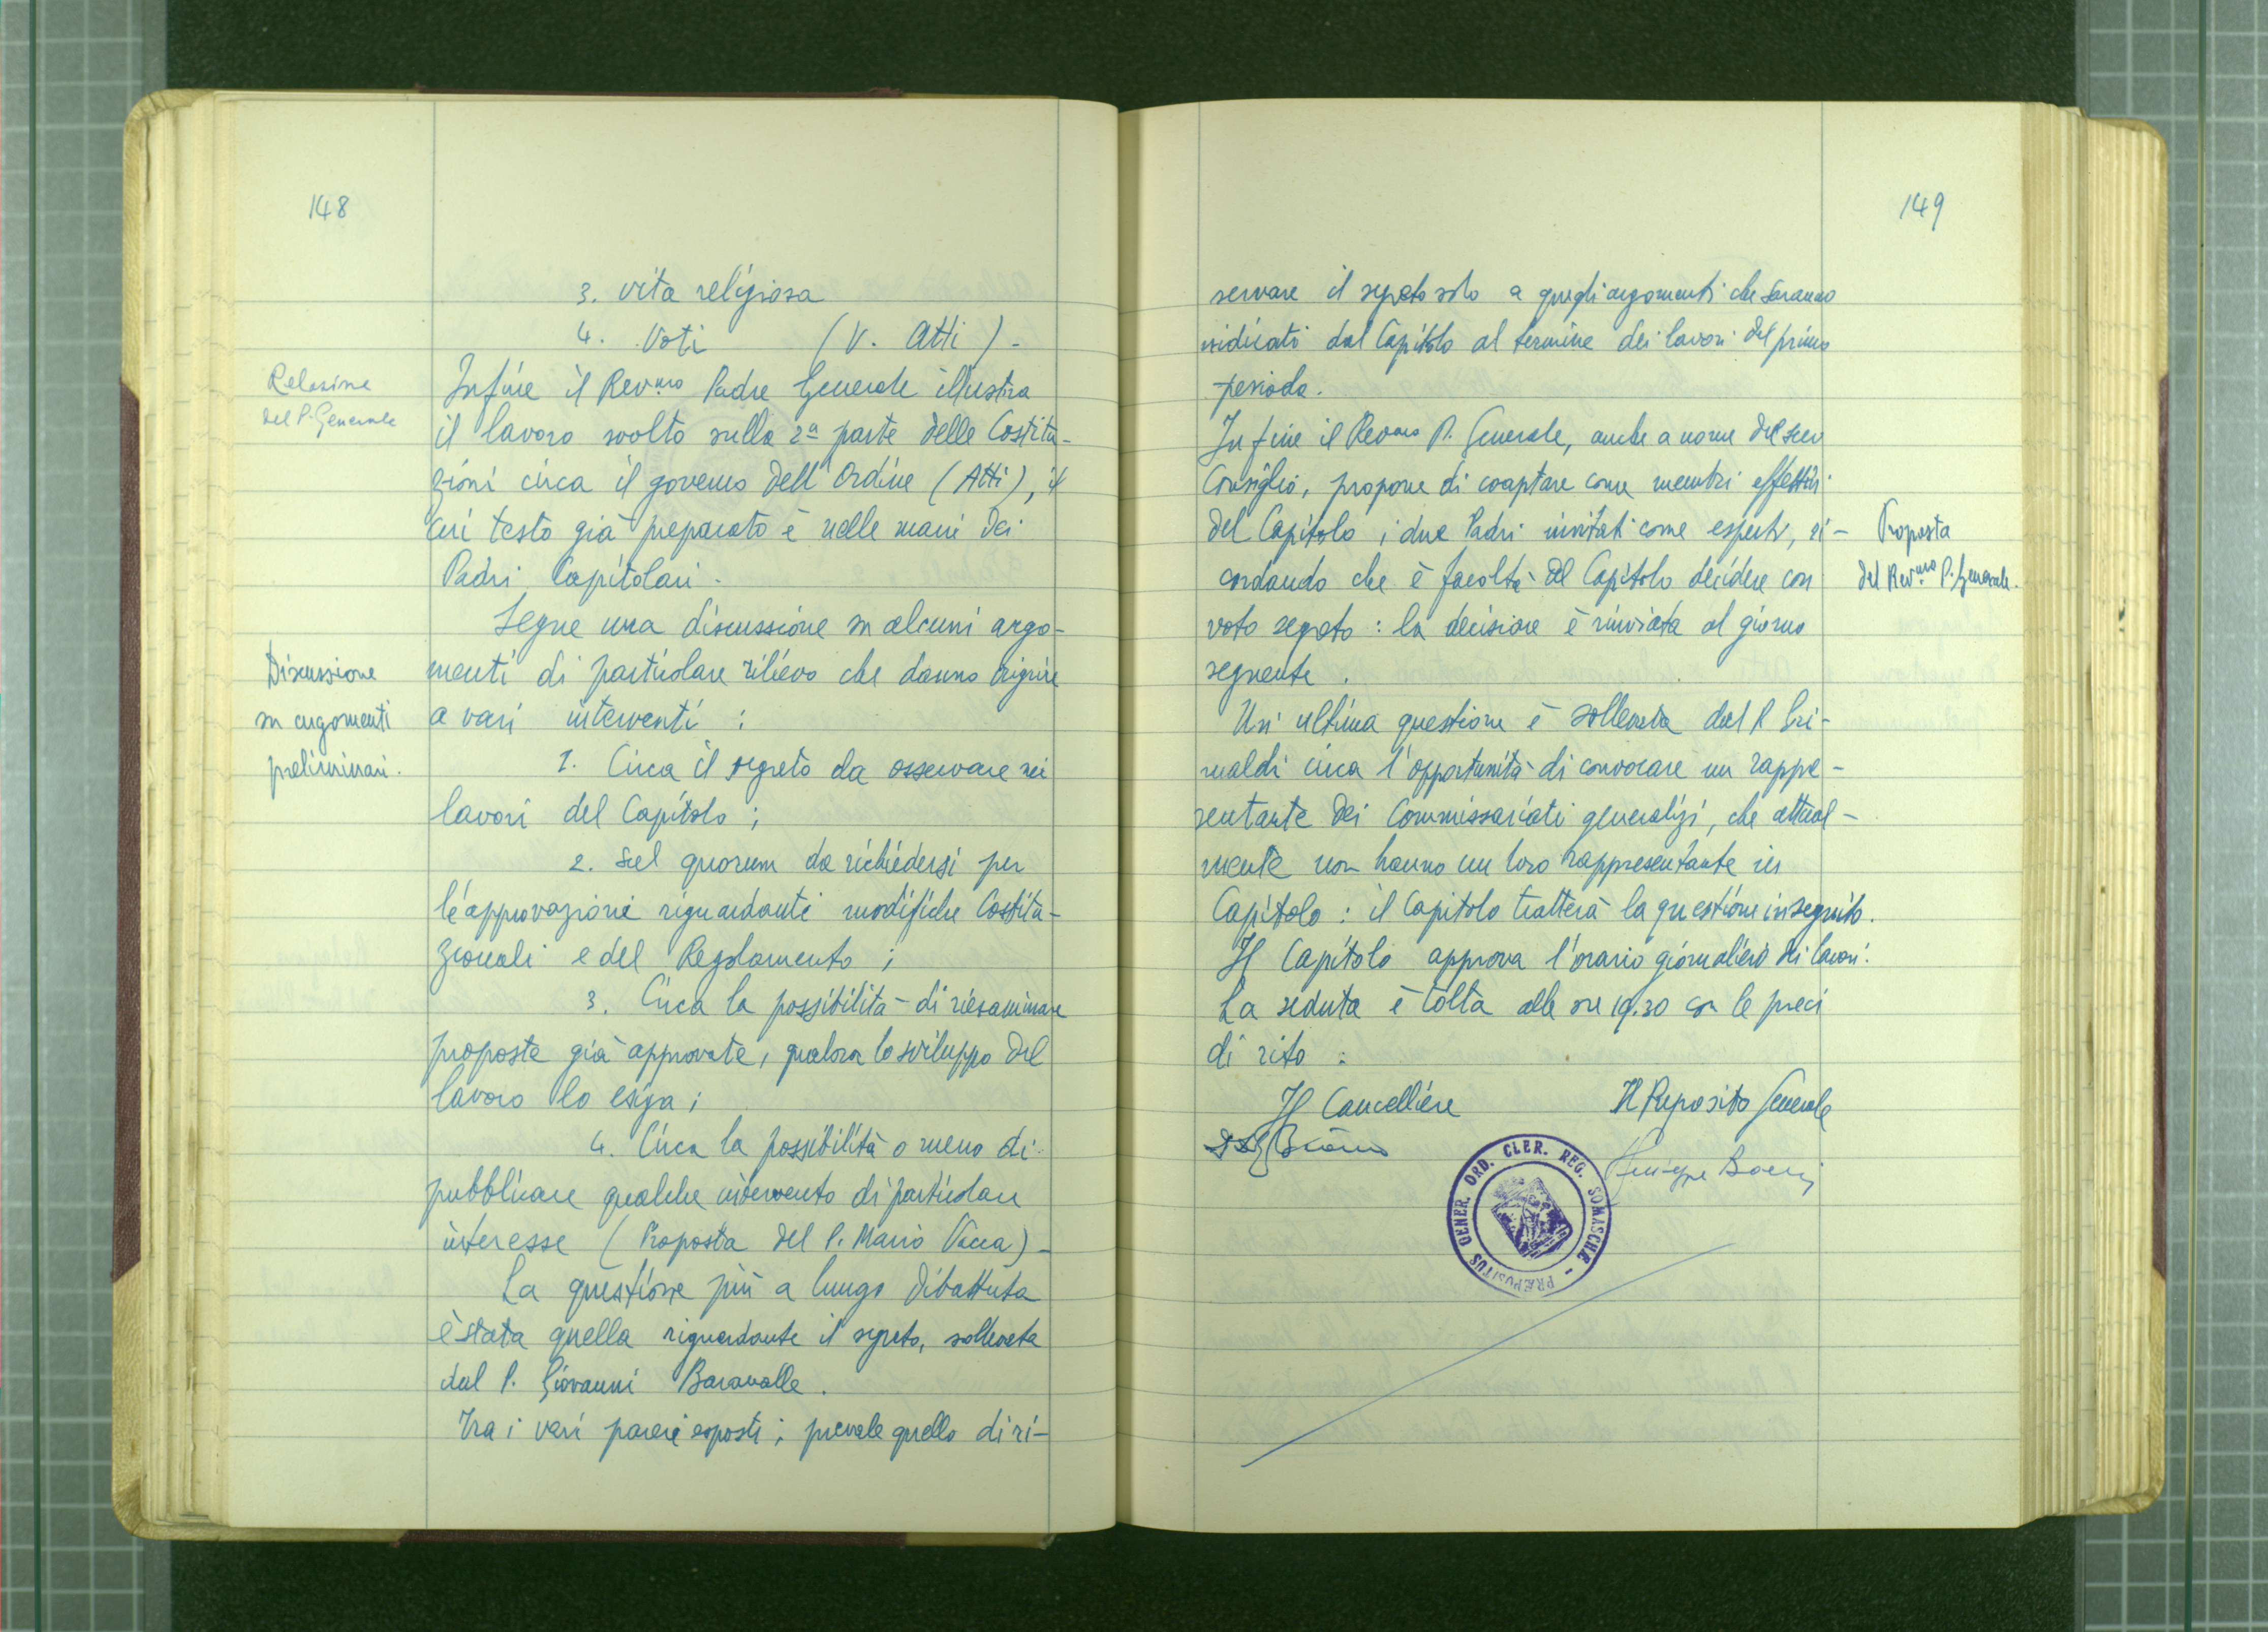 148
3. vita religiosa
4. Voti (V. Atti) -
Relazione
del P. Generale
Infine il Rev.mo Padre Generale illustra
il lavoro svolto sulla 2a parte delle Costitu-
zioni circa il governo dell'Ordine (Atti), il
cui testo già preparato è nelle mani dei
Padri Capitolari.
Segue una discussione su alcuni argo-
Discussione
su argomenti
preliminari.
menti di particolare rilievo che danno origine
a vari interventi :
1. Circa il segreto da osservare nei
lavori del Capitolo ;
2. Sul quorum da richiedersi per
le approvazioni riguardanti modifiche Costitu-
zionali e del Regolamento ;
3. Circa la possibilità di riesaminare
proposte già approvate, qualora lo sviluppo del
lavoro lo esiga ;
4. Circa la possibilità o meno di
pubblicare qualche intervento di particolare
interesse (Proposta del P. Mario Vacca) -
La questione più a lungo dibattuta
è stata quella riguardante il segreto, sollevata
dal P. Giovanni Baravalle.
Tra i vari pareri esposti, prevale quello di ri-
149
servare il segreto solo a quegli argomenti che saranno
indicati dal Capitolo al termine dei lavori del primo
periodo.
Infine il Rev.mo P. Generale, anche a nome del suo
Consiglio, propone di cooptare come membri effettivi
del Capitolo i due Padri invitati come esperti, ri-
Proposta
del Rev.mo P. Generale.
cordando che è facoltà del Capitolo decidere con
voto segreto : la decisione è rinviata al giorno
seguente.
Un'ultima questione è sollevata dal P. Gri-
maldi circa l'opportunità di convocare un rappre-
sentante dei Commissariati generalizi, che attual-
mente non hanno un loro rappresentante in
Capitolo : il Capitolo tratterà la questione in seguito.
Il Capitolo approva l'orario giornaliero dei lavori.
La seduta è tolta alle ore 19.30 con le preci
di rito.
Il Cancelliere
Il Preposito Generale
Giuseppe Boeris
PRÆPOSITUS GENER. ORD. CLER. REG. SOMASCHÆ -